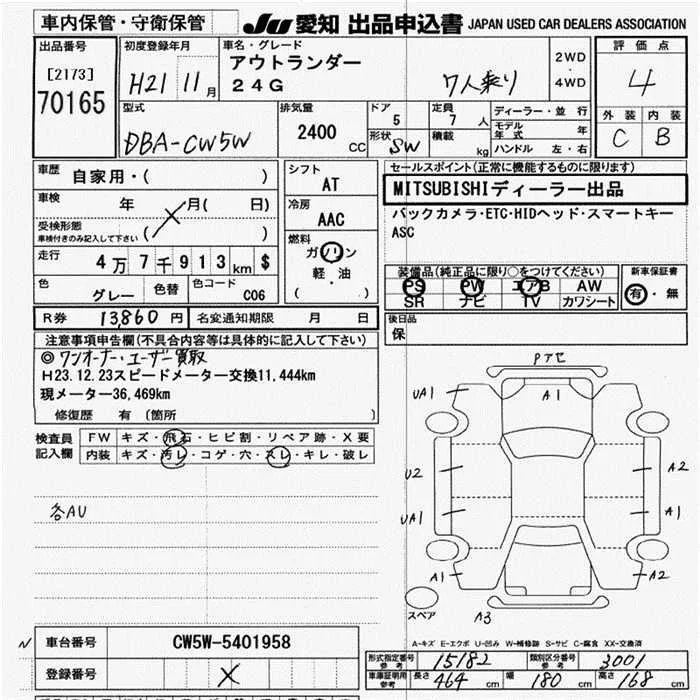 車内保管・守衛保管
JU 愛知 出品申込書 JAPAN USED CAR DEALERS ASSOCIATION
出品番号
[2173]
70165
初度登録年月
H21 11月
車名・グレード
アウトランダー
24G
7人乗り
2WD
・
4WD
評価点
4
外装 内装
C B
型式
DBA-CW5W
排気量
2400
CC
ドア
5
形状
SW
定員
7人
積載
kg
ディーラー・並行
モデル年式 年
ハンドル 左・右
車歴 自家用・( )
車検 年 月( 日)
受検形態
車検付きのみ記入して下さい ( )
走行 4万7千913km $
色 グレー 色替 色コード C06
シフト
AT
冷房
AAC
燃料
ガソリン
軽・油
( )
セールスポイント(正常に機能するものに限ります)
MITSUBISHIディーラー出品
バックカメラ・ETC・HIDヘッド・スマートキー
ASC
装備品(純正品に限り○をつけてください)
PS PW エアB AW
SR ナビ TV カワシート
新車保証書
有・無
R券 13,860円 名変通知期限 月 日
後日品
保
注意事項申告欄(不具合内容等は具体的に記入して下さい)
◎ワンオーナー、ユーザー買取
H23.12.23スピードメーター交換11,444km
現メーター36,469km
修復歴 有 〔箇所 〕
検査員
記入欄
FW キズ・飛石・ヒビ割・リペア跡・X要
内装 キズ・汚レ・コゲ・穴・スレ・キレ・破レ
各AU
Pアセ
UA1
A1
U2
A2
UA1
A1
A1
A2
スペア
A3
A-キズ E-エクボ U-凹み W-補修跡 S-サビ C-腐食 XX-交換済
車台番号 CW5W-5401958
登録番号
形式指定番号
参考
15182
類別区分番号
参考
3001
車庫証明用
参考
長さ 464 cm 幅 180 cm 高さ 168 cm